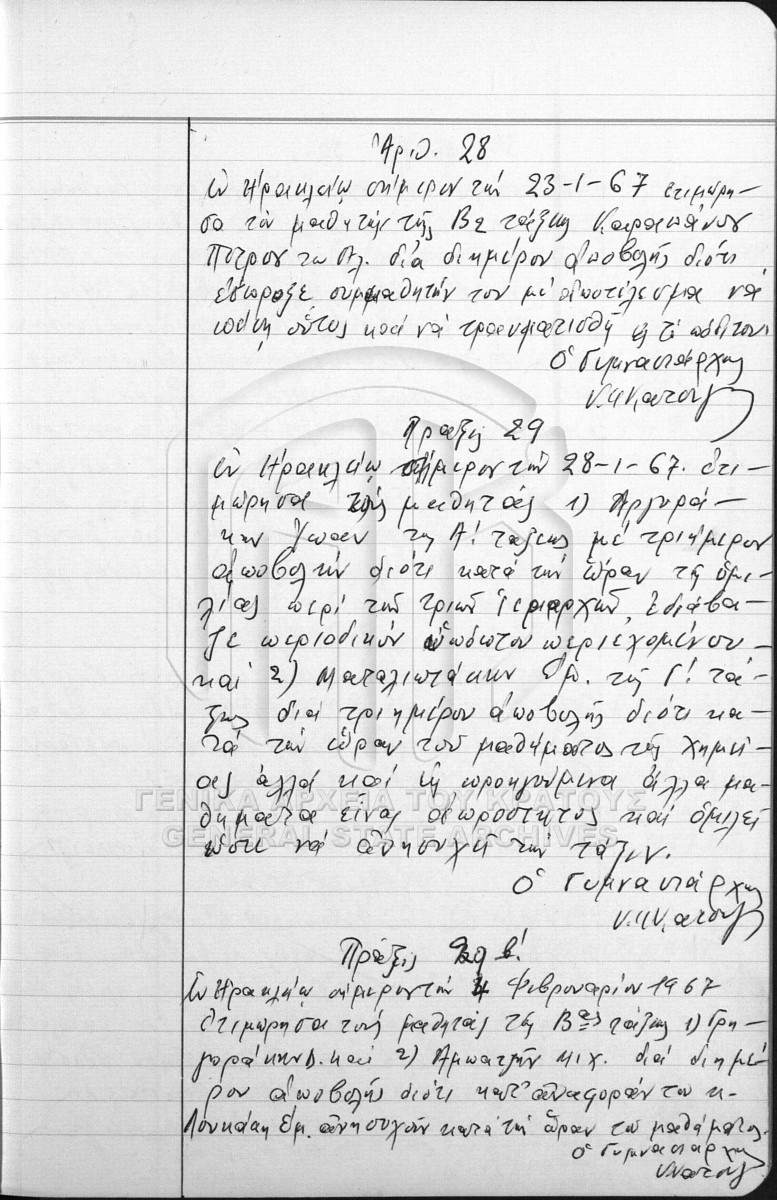 Ἀριθ. 28
Ἐν Ἡρακλείῳ σήμερον τήν 23-1-67 ἐτιμώρη-
σα τόν μαθητήν τῆς Β2 τάξεως
Πέτρον τοῦ διά διημέρου ἀποβολῆς διότι
ἔσπρωξε συμμαθητήν του μέ ἀποτέλεσμα νά
οὗτος καί νά τραυματισθῇ εἰς τό
Ὁ Γυμνασιάρχης
Πρᾶξις 29
Ἐν Ἡρακλείῳ σήμερον τήν 28-1-67. ἐτι-
μώρησα τούς μαθητάς 1) Ἀργυρά-
κην Ἰωάν. τῆς Α! τάξεως μέ τριήμερον
ἀποβολήν διότι κατά τήν ὥραν τῆς ὁμι-
λίας περί τῶν τριῶν Ἱεραρχῶν, ἐδιάβα-
ζε περιοδικόν περιεχομένου
καί 2) Ματαλιωτάκην Ἐμ. τῆς Γ! τά-
ξεως διά τριημέρου ἀποβολῆς διότι κα-
τά τήν ὥραν τοῦ μαθήματος τῆς Χημεί-
ας ἀλλά καί εἰς προηγούμενα ἄλλα μα-
θήματα εἶναι ἀπρόσεκτος καί ὁμιλεῖ
ὥστε νά ἀνησυχῇ τήν τάξιν.
Ὁ Γυμνασιάρχης
Πρᾶξις β!
Ἐν Ἡρακλείῳ σήμερον τήν 4 Φεβρουαρίου 1967
ἐτιμώρησα τούς μαθητάς τῆς Βας τάξεως 1) Γρη-
γοράκην Δ. καί 2) Μιχ. διά διημέ-
ρου ἀποβολῆς διότι κατ' ἀναφοράν τοῦ κ.
Λουκάκη Ἐμ. ἀνησυχοῦν κατά τήν ὥραν τοῦ μαθήματος.
Ὁ Γυμνασιάρχης
ΓΕΝΙΚΑ ΑΡΧΕΙΑ ΤΟΥ ΚΡΑΤΟΥΣ
GENERAL STATE ARCHIVES